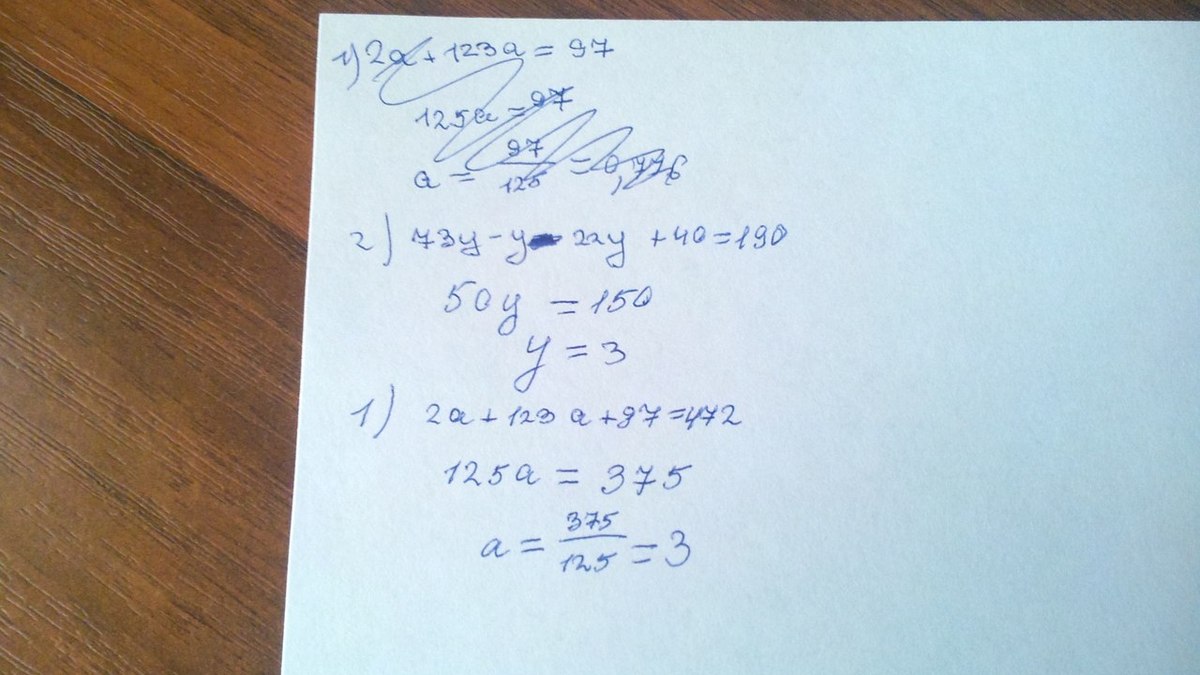 1) 2a + 123a = 97
125a = 97
a = 97/125 = 0,776
2) 73y - y - 22y + 40 = 190
50y = 150
y = 3
1) 2a + 123a + 97 = 472
125a = 375
a = 375/125 = 3